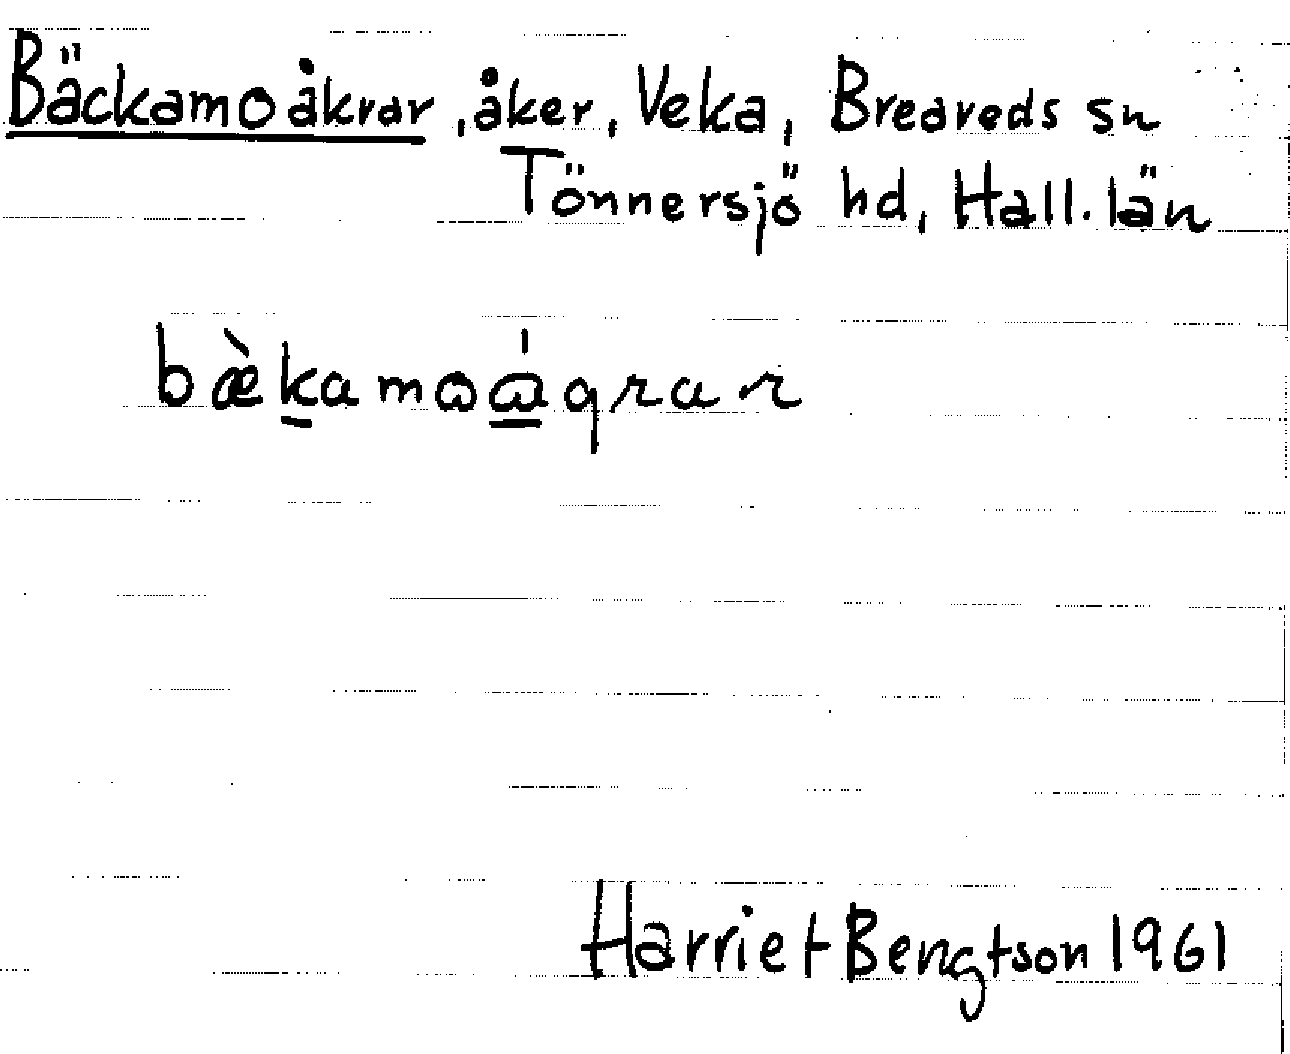 Bäckamoåkrar, åker, Veka, Breareds sn
Tönnersjö hd, Hall. län
bæ̀ḵamɷɷ̱́grar
Harriet Bengtson 1961